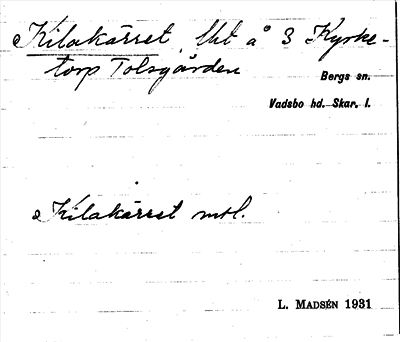 Kilakärret, Uht å 3 Kyrke-
torp Tolsgården
Bergs sn.
Vadsbo hd. Skar. l.
Kilakärret mtl.
L. MADSÉN 1931